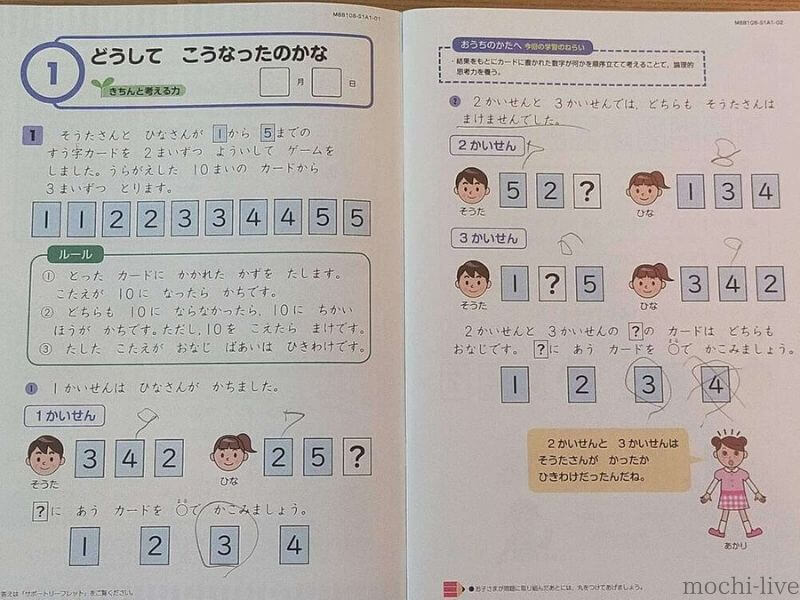 MBB108-S1A1-01
1
どうして こうなったのかな
きちんと考える力
月 日
1 そうたさんと ひなさんが 1から 5までの
すう字カードを 2まいずつ よういして ゲームを
しました。うらがえした 10まいの カードから
3まいずつ とります。
1 1 2 2 3 3 4 4 5 5
ルール
① とった カードに かかれた かずを たします。
こたえが 10に なったら かちです。
② どちらも 10に ならなかったら, 10に ちかい
ほうが かちです。ただし, 10を こえたら まけです。
③ たした こたえが おなじ ばあいは ひきわけです。
❶ 1かいせんは ひなさんが かちました。
1かいせん
9 7
3 4 2 2 5 ?
そうた ひな
?に あう カードを ○で かこみましょう。
1 2 3 4
答えは「サポートリーフレット」をご覧ください。
MBB108-S1A1-02
おうちのかたへ 今回の学習のねらい
・結果をもとにカードに書かれた数字が何かを順序立てて考えることで、論理的
思考力を養う。
❷ 2かいせんと 3かいせんでは, どちらも そうたさんは
まけませんでした。
2かいせん
7 8
5 2 ? 1 3 4
そうた ひな
3かいせん
9
1 ? 5 3 4 2
そうた ひな
2かいせんと 3かいせんの ?の カードは どちらも
おなじです。?に あう カードを ○で かこみましょう。
1 2 3 4
2かいせんと 3かいせんは
そうたさんが かったか
ひきわけだったんだね。
あかり
●お子さまが問題に取り組んだあとには、丸をつけてあげましょう。
mochi-live